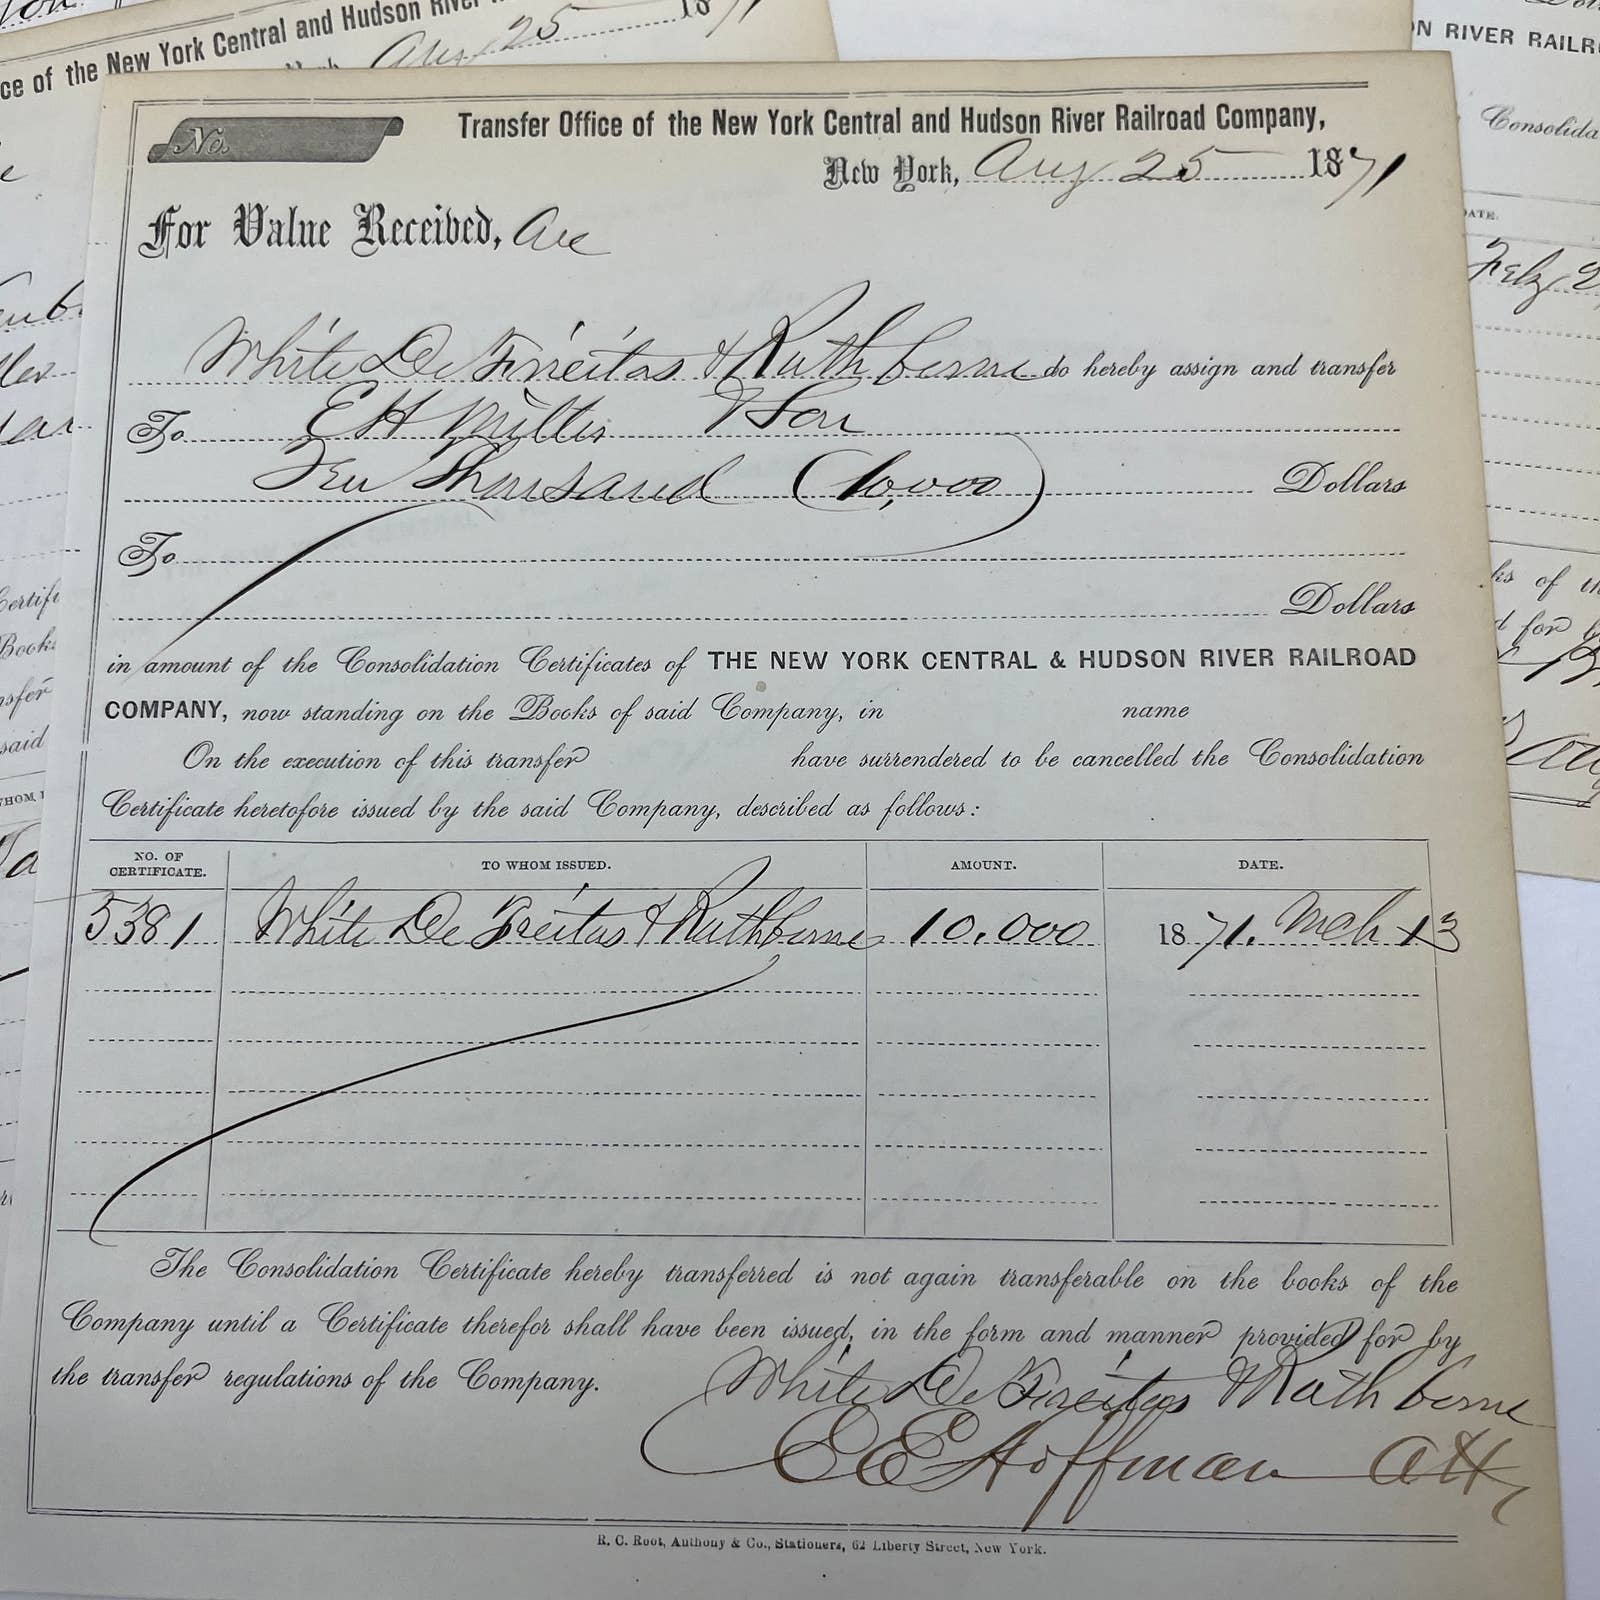 No.
Transfer Office of the New York Central and Hudson River Railroad Company,
New York, Aug 25 1871
For Value Received,
White De Freitas & Rathborne do hereby assign and transfer
To E H Miller & Son
Ten Thousand (10,000) Dollars
To
Dollars
in amount of the Consolidation Certificates of THE NEW YORK CENTRAL & HUDSON RIVER RAILROAD
COMPANY, now standing on the Books of said Company, in name
On the execution of this transfer have surrendered to be cancelled the Consolidation
Certificate heretofore issued by the said Company, described as follows:
NO. OF CERTIFICATE. TO WHOM ISSUED. AMOUNT. DATE.
5381 White De Freitas & Rathborne 10.000 1871. Mch 13
The Consolidation Certificate hereby transferred is not again transferable on the books of the
Company until a Certificate therefor shall have been issued, in the form and manner provided for by
the transfer regulations of the Company.
White De Freitas & Rathborne
E E Hoffman Atty
R. C. Root, Anthony & Co., Stationers, 62 Liberty Street, New York.
ce of the New York Central and Hudson River
Aug 25 1871
N RIVER RAILR
Consolida
DATE.